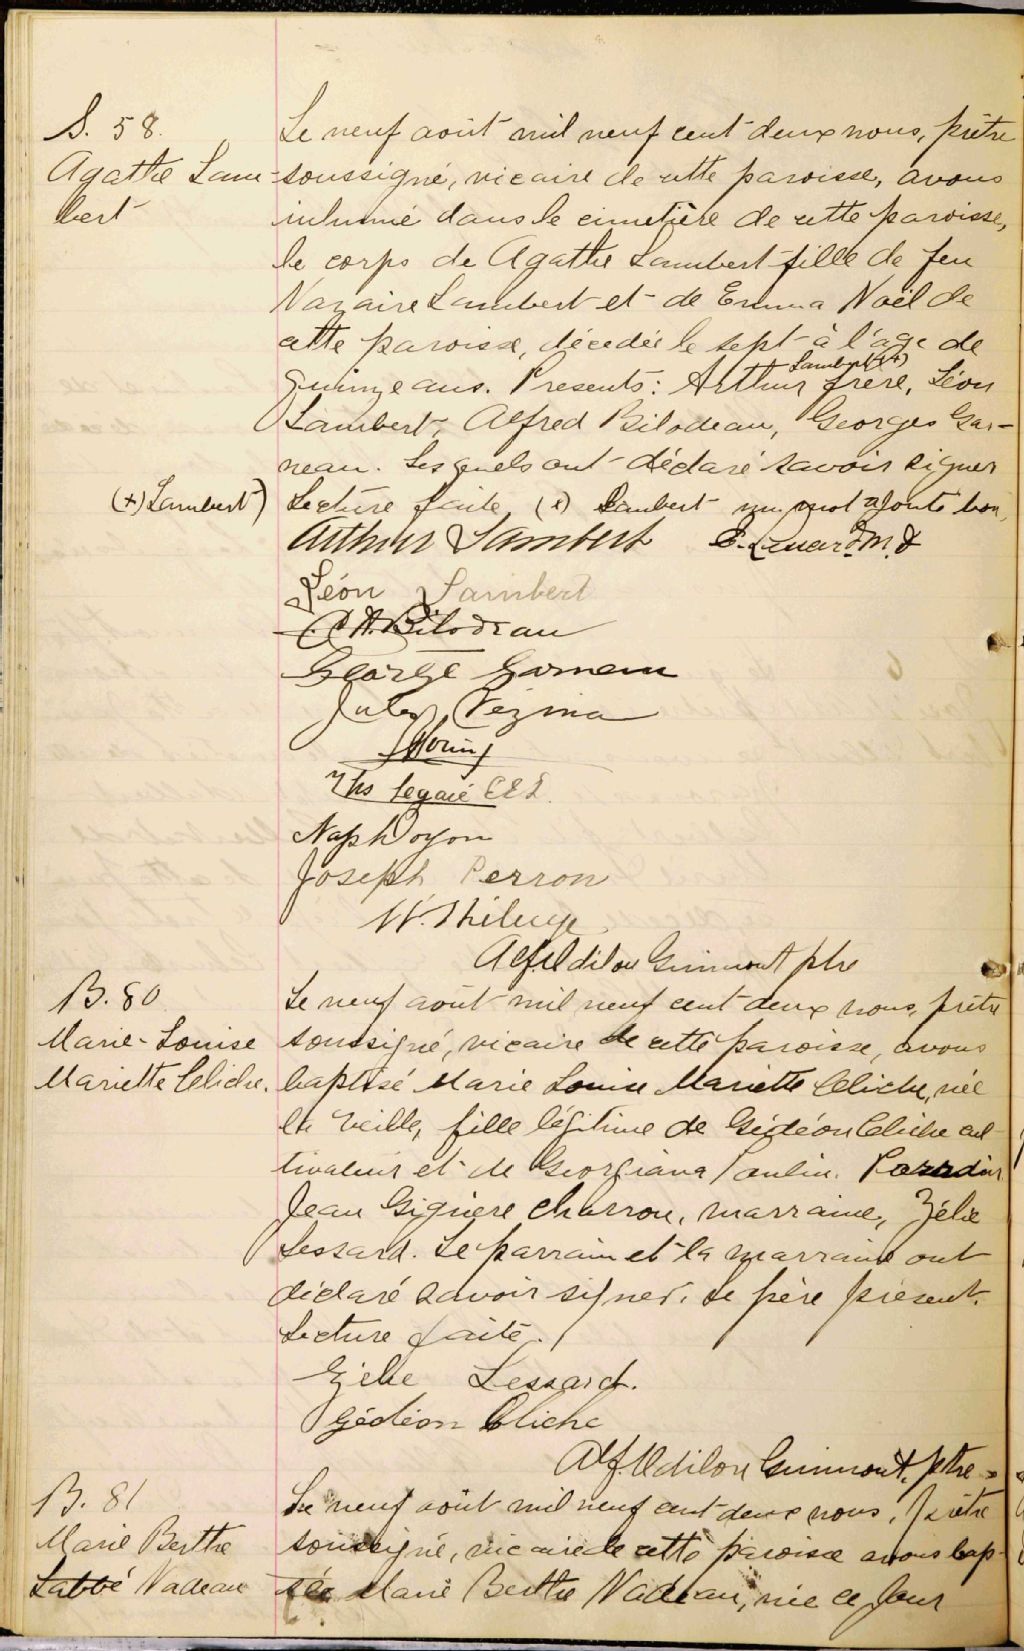 S. 58.
Agathe Lam-
bert
Le neuf août mil neuf cent deux nous, prêtre
soussigné, vicaire de cette paroisse, avons
inhumé dans le cimetière de cette paroisse,
le corps de Agathe Lambert fille de feu
Nazaire Lambert et de Emma Noël de
cette paroisse, décédée le sept à l'âge de
quinze ans. Presents: Arthur Lambert (+) frère, Léon
Lambert, Alfred Bilodeau, Georges Gar-
neau. Lesquels ont déclaré savoir signer
(+) Lambert) Lecture faite (+) Lambert un mot ajouté bon,
Arthur Lambert
Léon Lambert
A. Bilodeau
George Garneau
Jules Vézina
Morin
Ths Legaré E.E.L.
Nap Doyon
Joseph Perron
Alf. Odilon Guimont ptre
B. 80
Marie-Louise
Mariette Cliche.
Le neuf août mil neuf cent deux nous, prêtre
soussigné, vicaire de cette paroisse, avons
baptisé Marie Louise Mariette Cliche, née
la veille, fille légitime de Gédéon Cliche cul-
tivateur et de Georgiana Poulin. Parrain
Jean Giguère charron, marraine, Zélie
Lessard. Le parrain et la marraine ont
déclaré savoir signer. Le père présent.
Lecture faite.
Zélie Lessard.
Gédéon Cliche
Alf. Odilon Guimont, ptre
B. 81
Marie Berthe
Labbé Nadeau
Le neuf août mil neuf cent deux nous, prêtre
soussigné, vicaire de cette paroisse avons bap-
tisé Marie Berthe Nadeau, née ce jour